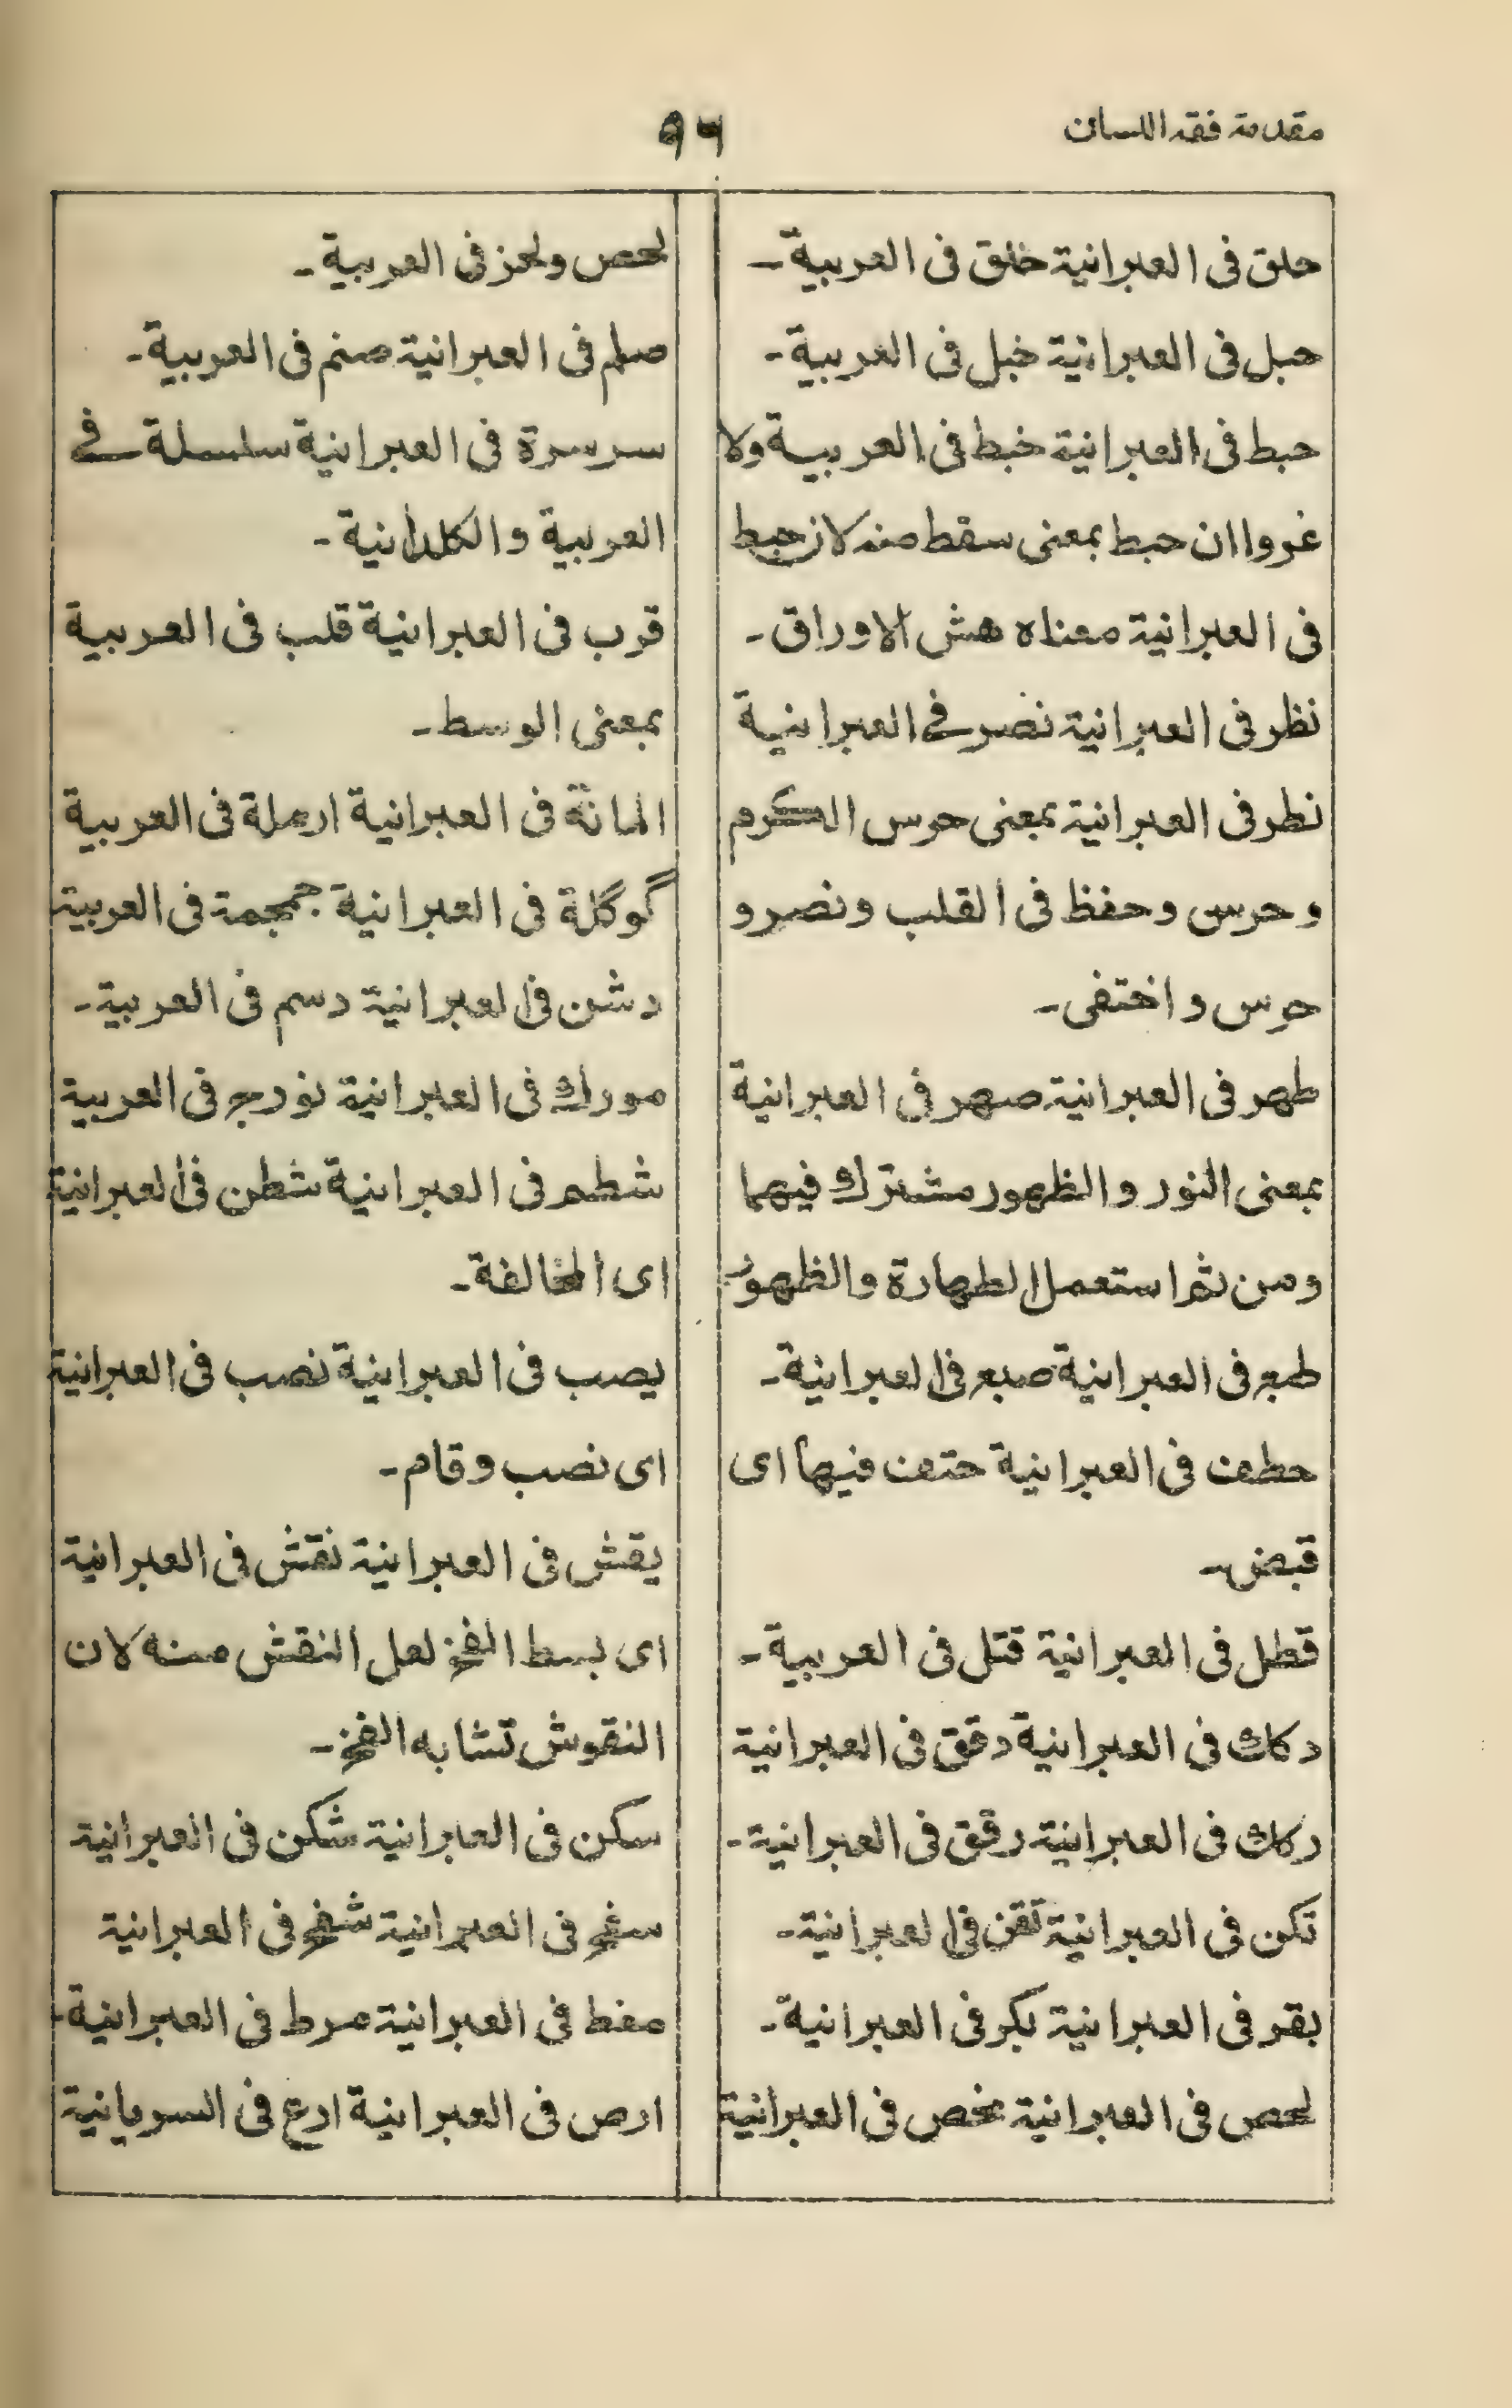 مقدمة فقه اللسان
٩٦
حلق فى العبرانية خلق فى العربية -
حبل فى العبرانية خبل فى العربية -
حبط فى العبرانية خبط فى العربية ولا
غروا ان حبط بمعنى سقط منه لان حبط
فى العبرانية معناه هش الاوراق -
نظر فى العبرانية نصر فے العبرانية
نطر فى العبرانية بمعنى حرس الكرم
وحرس وحفظ فى القلب ونصر و
حرس واختفى -
طهر فى العبرانية صهر فى العبرانية
بمعنى النور والظهور مشترك فيهما
ومن ثم استعمل الطهارة والظهور
طبع فى العبرانية صبع فى العبرانية -
حطف فى العبرانية حتف فيها اى
قبض -
قطل فى العبرانية قتل فى العربية -
دكك فى العبرانية دقق فى العبرانية
ركك فى العبرانية رقق فى العبرانية -
تكن فى العبرانية تقن فى العبرانية -
بقر فى العبرانية بكر فى العبرانية -
لحص فى العبرانية نخص فى العبرانية
لحص ولحز فى العربية -
صلم فى العبرانية صنم فى العربية -
سرسرة فى العبرانية سلسلة فے
العربية والكلدانية -
قرب فى العبرانية قلب فى العربية
بمعنى الوسط -
المانة فى العبرانية ارملة فى العربية
گوگلة فى العبرانية جمجمة فى العربية
دشن فى العبرانية دسم فى العربية -
مورك فى العبرانية نورج فى العربية
شطم فى العبرانية شطن فى العبرانية
اى المخالفة -
يصب فى العبرانية نصب فى العبرانية
اى نصب وقام -
يقش فى العبرانية نقش فى العبرانية
اى بسط الفخ لعل النقش منه لان
النقوش تشابه الفخ -
سكن فى العبرانية شكن فى العبرانية
سفح فى العبرانية شفح فى العبرانية
مغط فى العبرانية مرط فى العبرانية -
ارص فى العبرانية ارع فى السريانية